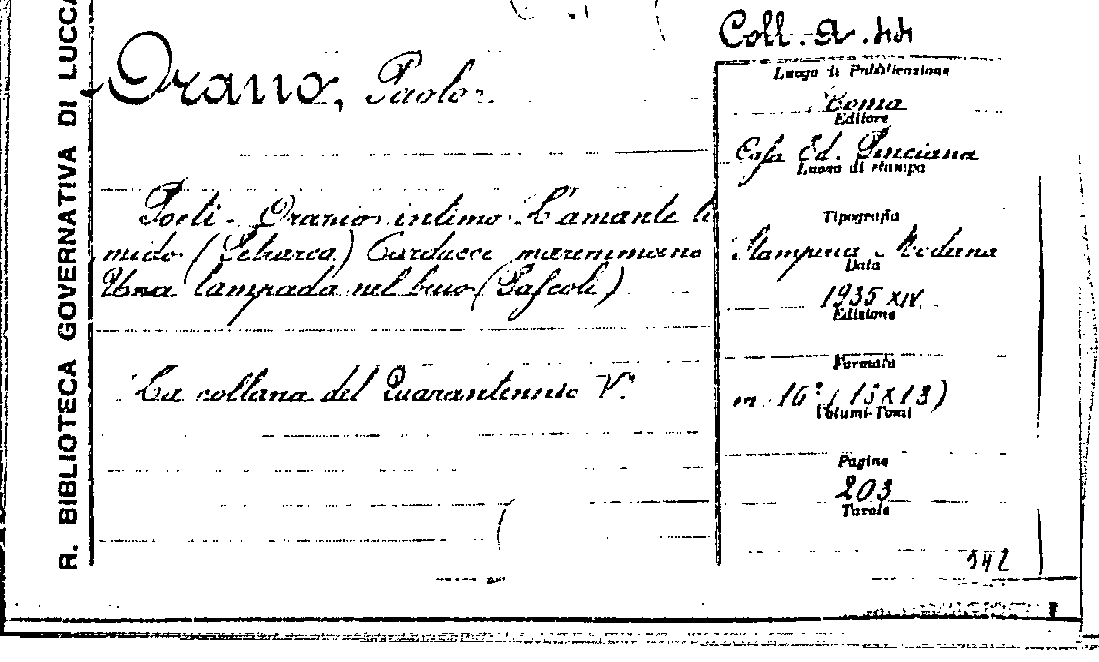 R. BIBLIOTECA GOVERNATIVA DI LUCCA
Coll. A. 44
Orano, Paolo.
Luogo di Pubblicazione
Roma
Editore
Casa Ed. Pinciana
Luogo di stampa
Poeti - Orazio intimo L'amante ti
mido (Petrarca) Carducci maremmano
Una lampada nel buio (Pascoli)
Tipografia
Stamperia Moderna
Data
1935 XIV
Edizione
La collana del Quarantennio V°
Formato
in 16° (13x13)
Volumi-Tomi
Pagine
203
Tavole